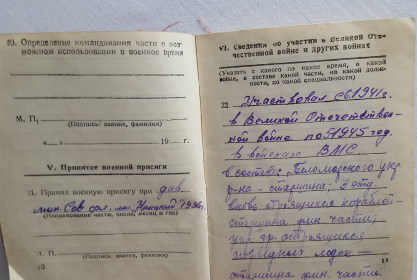 20. Определение командования части о воз-
можном использовании в военное время
М. П.
(Подпись: звание, фамилия)
19 г.
V. Принятие военной присяги
21. Принял военную присягу при див.
1936г.
(Наименование части, число, месяц и год)
М. П.
(Подпись: звание, фамилия)
10
VI. Сведения об участии в Великой Оте-
чественной войне и других войнах
(Указать с какого по какое время, в какой
войне, в составе какой части, на какой долж-
ности, по какой специальности)
22. Участвовал с 1941 г.
в Великой Отечествен-
ной войне по 1945 год.
в войсках ВМС
в составе: Беломорского укр.
р-на - старшина; 3 отд.
строящихся кораблей
старшина фин. части;
упр. гр. строящихся
подводных лодок -
старшина фин. части.